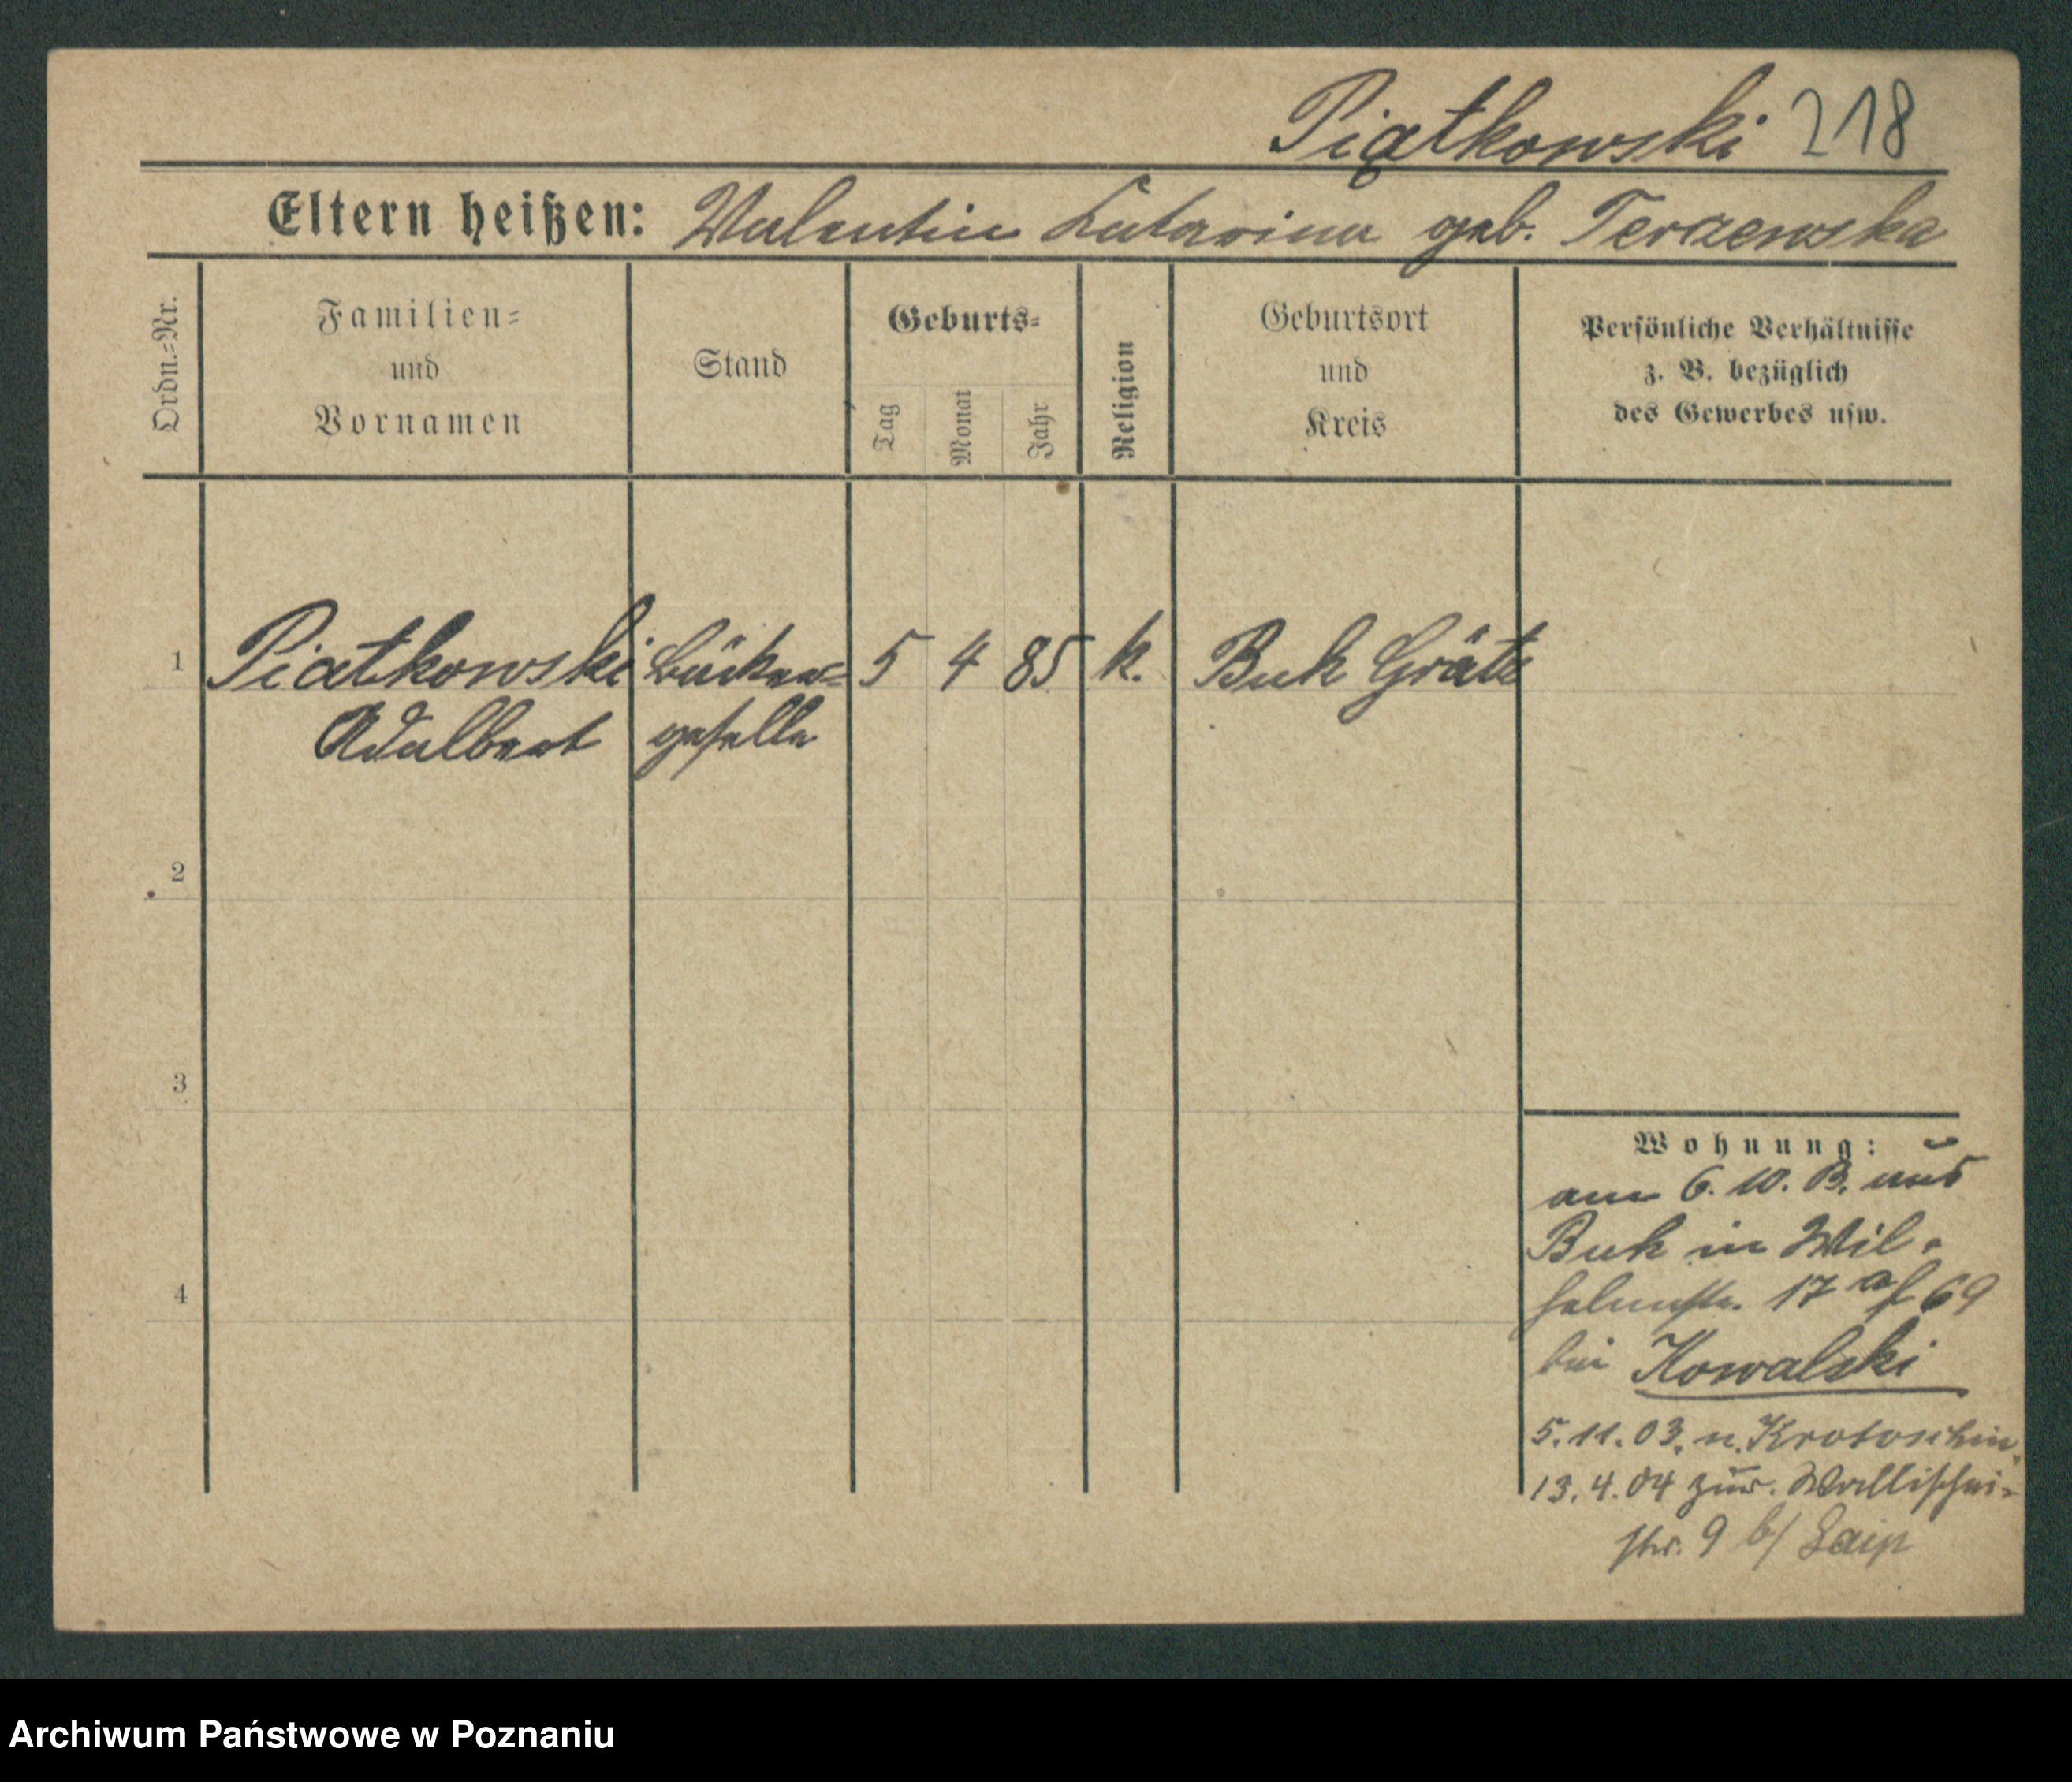 Piątkowski 218
Eltern heißen: Valentin Katarina geb. Terzewska
Ordn.=Nr.
Familien=
und
Vornamen
Stand
Geburts=
Tag
Monat
Jahr
Religion
Geburtsort
und
Kreis
Persönliche Verhältnisse
z. B. bezüglich
des Gewerbes usw.
1 Piatkowski Bäcker= 5 4 85 k. Buk Grätz
Adalbert geselle
2
3
4
Wohnung:
am 6. 10. B. aus
Buk in Wil=
helmstr. 17 69
bei Kowalski
5. 11. 03. n. Krotoschin
13. 4. 04 zur. Wallischei=
str. 9 b/
Archiwum Państwowe w Poznaniu